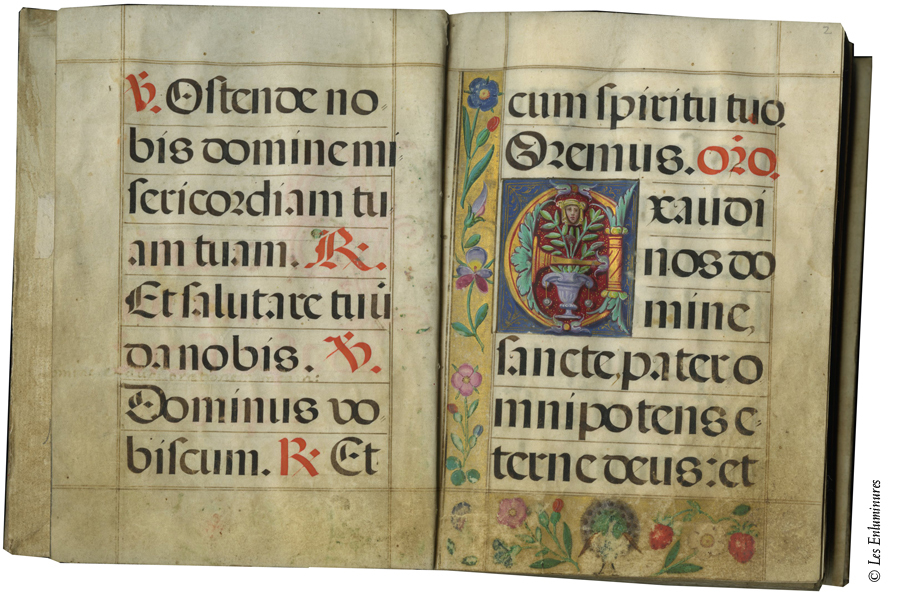 V. Ostende no-
bis domine mi-
sericordiam tu
am tuam. R.
Et salutare tuū
da nobis. V.
Dominus vo
biscum. R. Et
2.
cum spiritu tuo.
Oremus. or̄o.
Exaudi
nos do
mine,
sancte, pater o
mnipotens e-
terne deus: et
© Les Enluminures